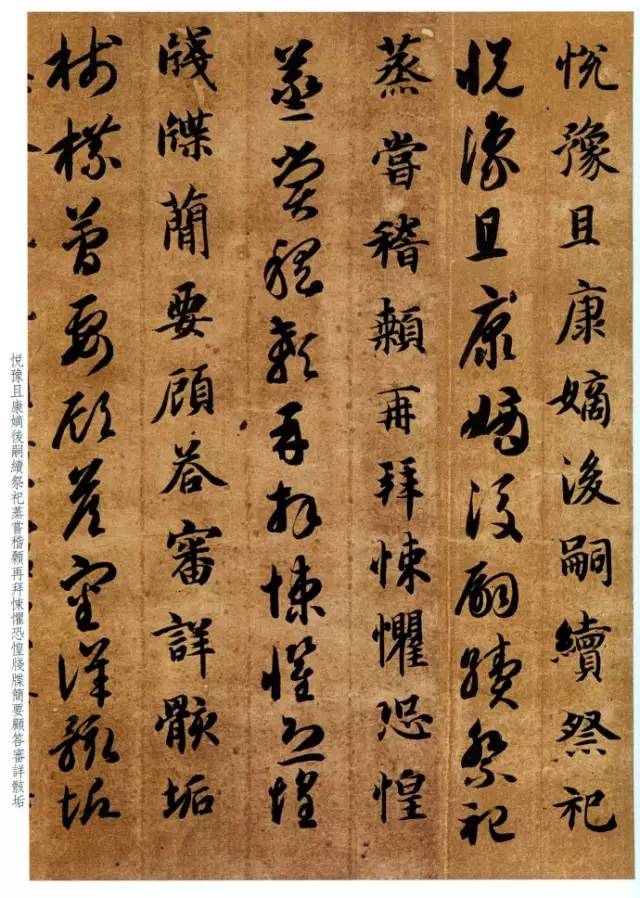 悦豫且康嫡後嗣續祭祀
悦豫且康嫡後嗣續祭祀
蒸嘗稽顙再拜悚懼恐惶
蒸嘗稽顙再拜悚懼恐惶
牋牒簡要顧答審詳骸垢
牋牒簡要顧答審詳骸垢
悦豫且康嫡後嗣續祭祀蒸嘗稽顙再拜悚懼恐惶牋牒簡要顧答審詳骸垢